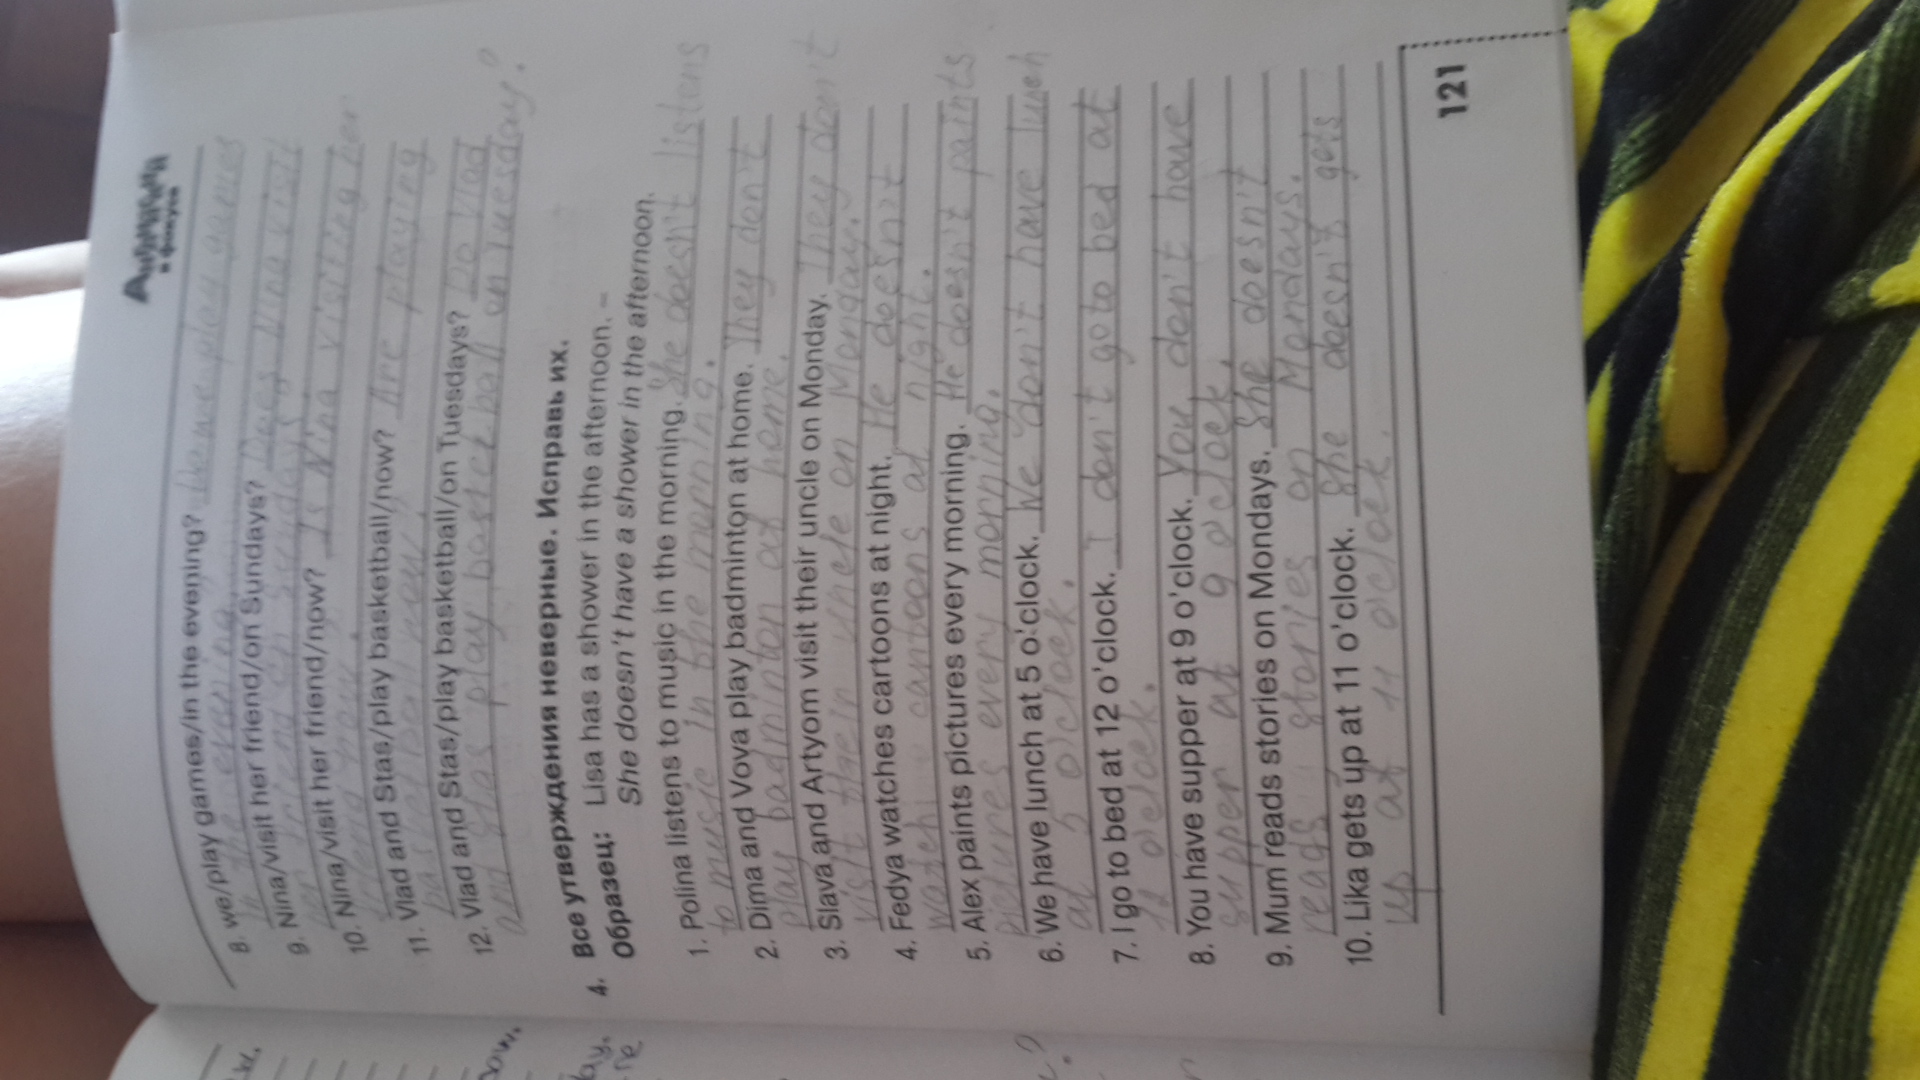 8. we/play games/in the evening? we play games
in the evening
9. Nina/visit her friend/on Sundays? Does Nina visit
her friend on Sundays
10. Nina/visit her friend/now? Is Nina visiting her
friend now
11. Vlad and Stas/play basketball/now? Are playing
basketball now
12. Vlad and Stas/play basketball/on Tuesdays? Do Vlad
and Stas play basketball on Tuesday?
4. Все утверждения неверные. Исправь их.
Образец: Lisa has a shower in the afternoon. –
She doesn't have a shower in the afternoon.
1. Polina listens to music in the morning. She doesn't listens
to music in the morning.
2. Dima and Vova play badminton at home. They don't
play badminton at home.
3. Slava and Artyom visit their uncle on Monday. They don't
visit their uncle on Monday.
4. Fedya watches cartoons at night. He doesn't
watch cartoons at night.
5. Alex paints pictures every morning. He doesn't paints
pictures every morning.
6. We have lunch at 5 o'clock. We don't have lunch
at 5 o'clock.
7. I go to bed at 12 o'clock. I don't go to bed at
12 o'clock.
8. You have supper at 9 o'clock. You don't have
supper at 9 o'clock.
9. Mum reads stories on Mondays. She doesn't
reads stories on Mondays.
10. Lika gets up at 11 o'clock. She doesn't gets
up at 11 o'clock.
121